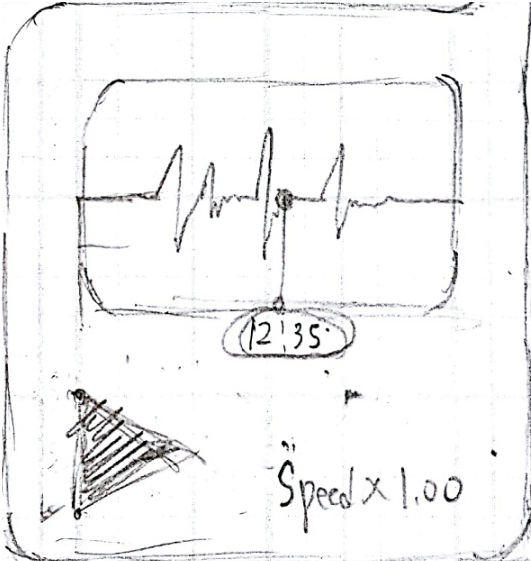 12:35
Speed × 1.00